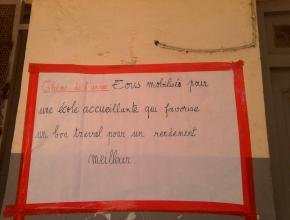 Thème de l'année Tous mobilisés pour
une école accueillante qui favorise
un bon travail pour un rendement
meilleur